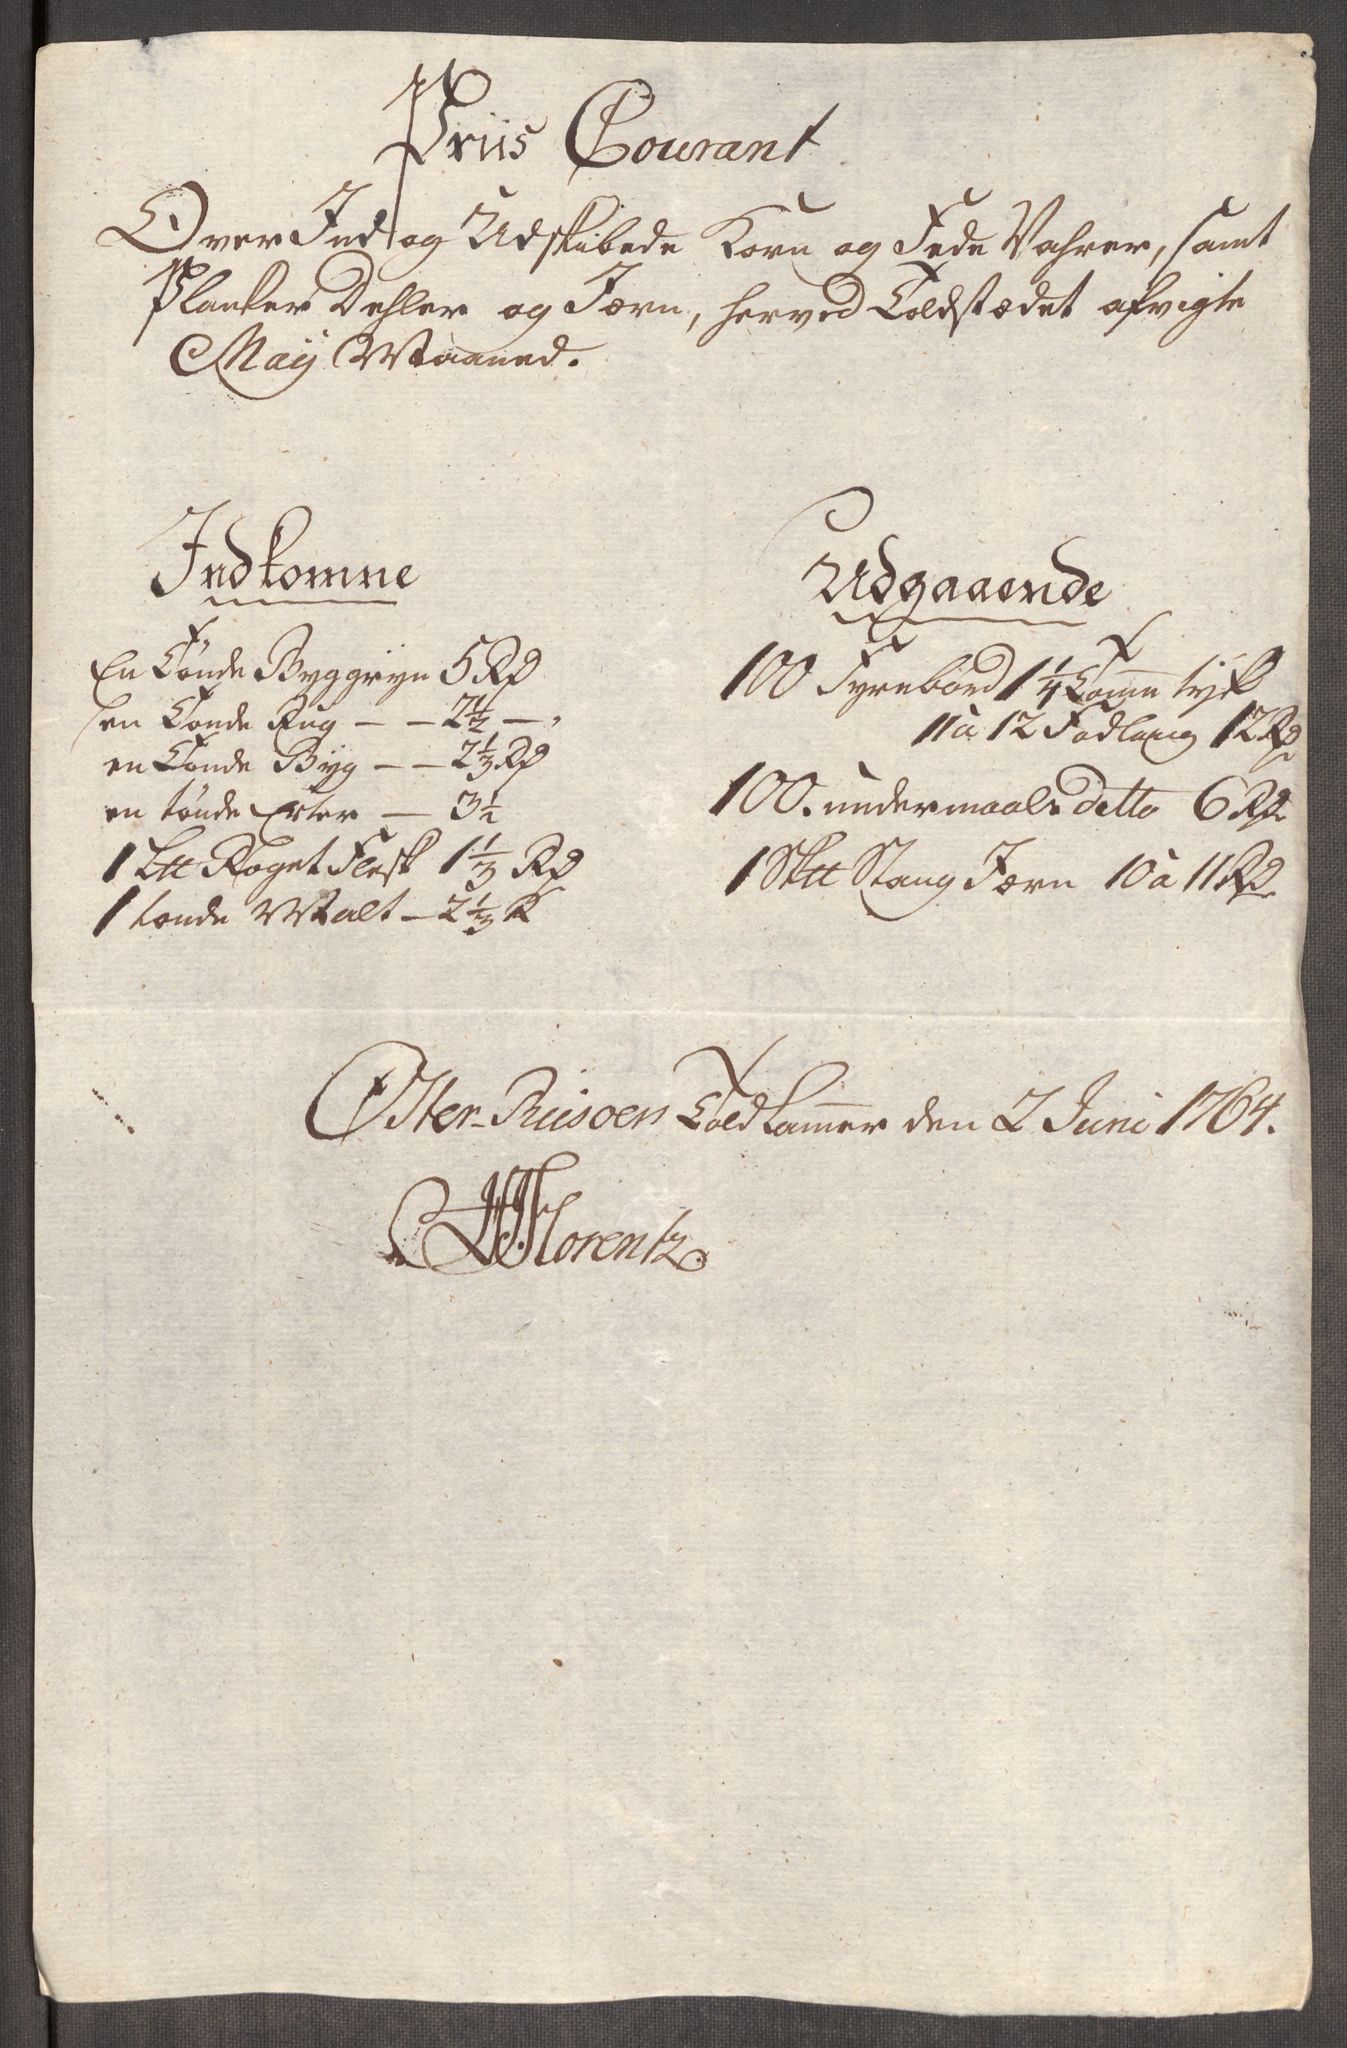 Priis Courant
Over Ind og Udskibede Korn og Fede Vahrer, samt
Planker Dehler og Jern, herved Toldstædet afvigte
Maij Maaned.
Indkomne
En Tønde Byggryn 5 Rd
en Tønde Rug – – 2½ –,
en Tønde Byg – – 2⅓ Rd
en tønde Erter – 3½
1 L℔ Røget Flesk 1⅓ Rd
1 tønde Malt – 2⅓ R
Udgaaende
100 Fyrrebord 1¼ Tomme tyk
11 à 12 Fod lang 12 Rd
100. undermaals detto 6 Rd
1 Sk℔ Stang Jern 10 à 11 Rd
Öster-Riisöers Toldkammer den 2 Juni 1764.
Florentz